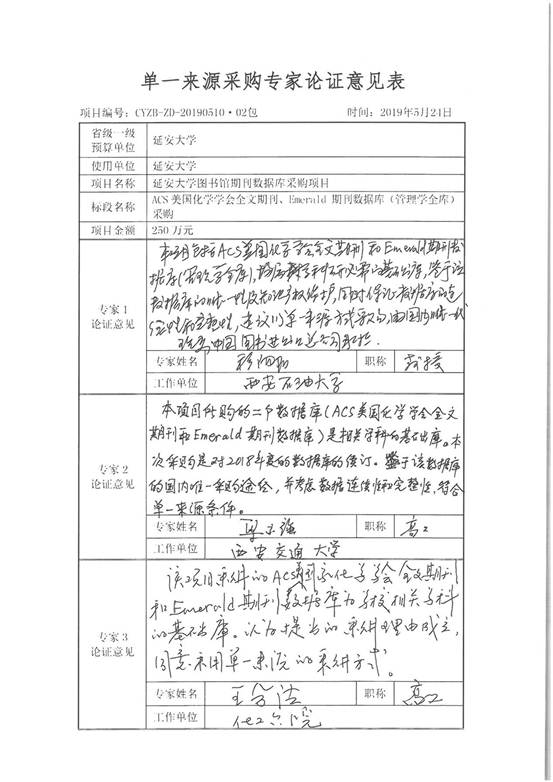 单一来源采购专家论证意见表
项目编号：CYZB-ZD-20190510·02包 时间：2019年5月24日
省级一级预算单位 延安大学
使用单位 延安大学
项目名称 延安大学图书馆期刊数据库采购项目
标段名称 ACS美国化学学会全文期刊、Emerald 期刊数据库（管理学全库）采购
项目金额 250万元
专家1
论证意见
本项目包括ACS美国化学学会全文期刊和Emerald期刊数
据库(管理学全库),
数据库的唯一性及知识产权保护,同时保证数据库的连
续性和完整性,建议以单一来源方式采购,由国内唯一代
中国图书进出口总公司
专家姓名 职称 教授
工作单位 西安石油大学
专家2
论证意见
本项目所购的二个数据库(ACS美国化学学会全文
期刊和Emerald期刊数据库)是相关学科的基础出库。本
次采购是对2018年度的数据库的续订。鉴于该数据库
的国内唯一采购途径,并考虑数据连续性和完整性,符合
单一来源条件。
专家姓名 职称 高工
工作单位 西安交通大学
专家3
论证意见
该项目采购的ACS美国化学学会全文期刊
和Emerald期刊数据库为学校相关学科
的基础库。认为提出的采购理由成立,
同意采用单一来源的采购方式。
专家姓名 职称 高工
工作单位